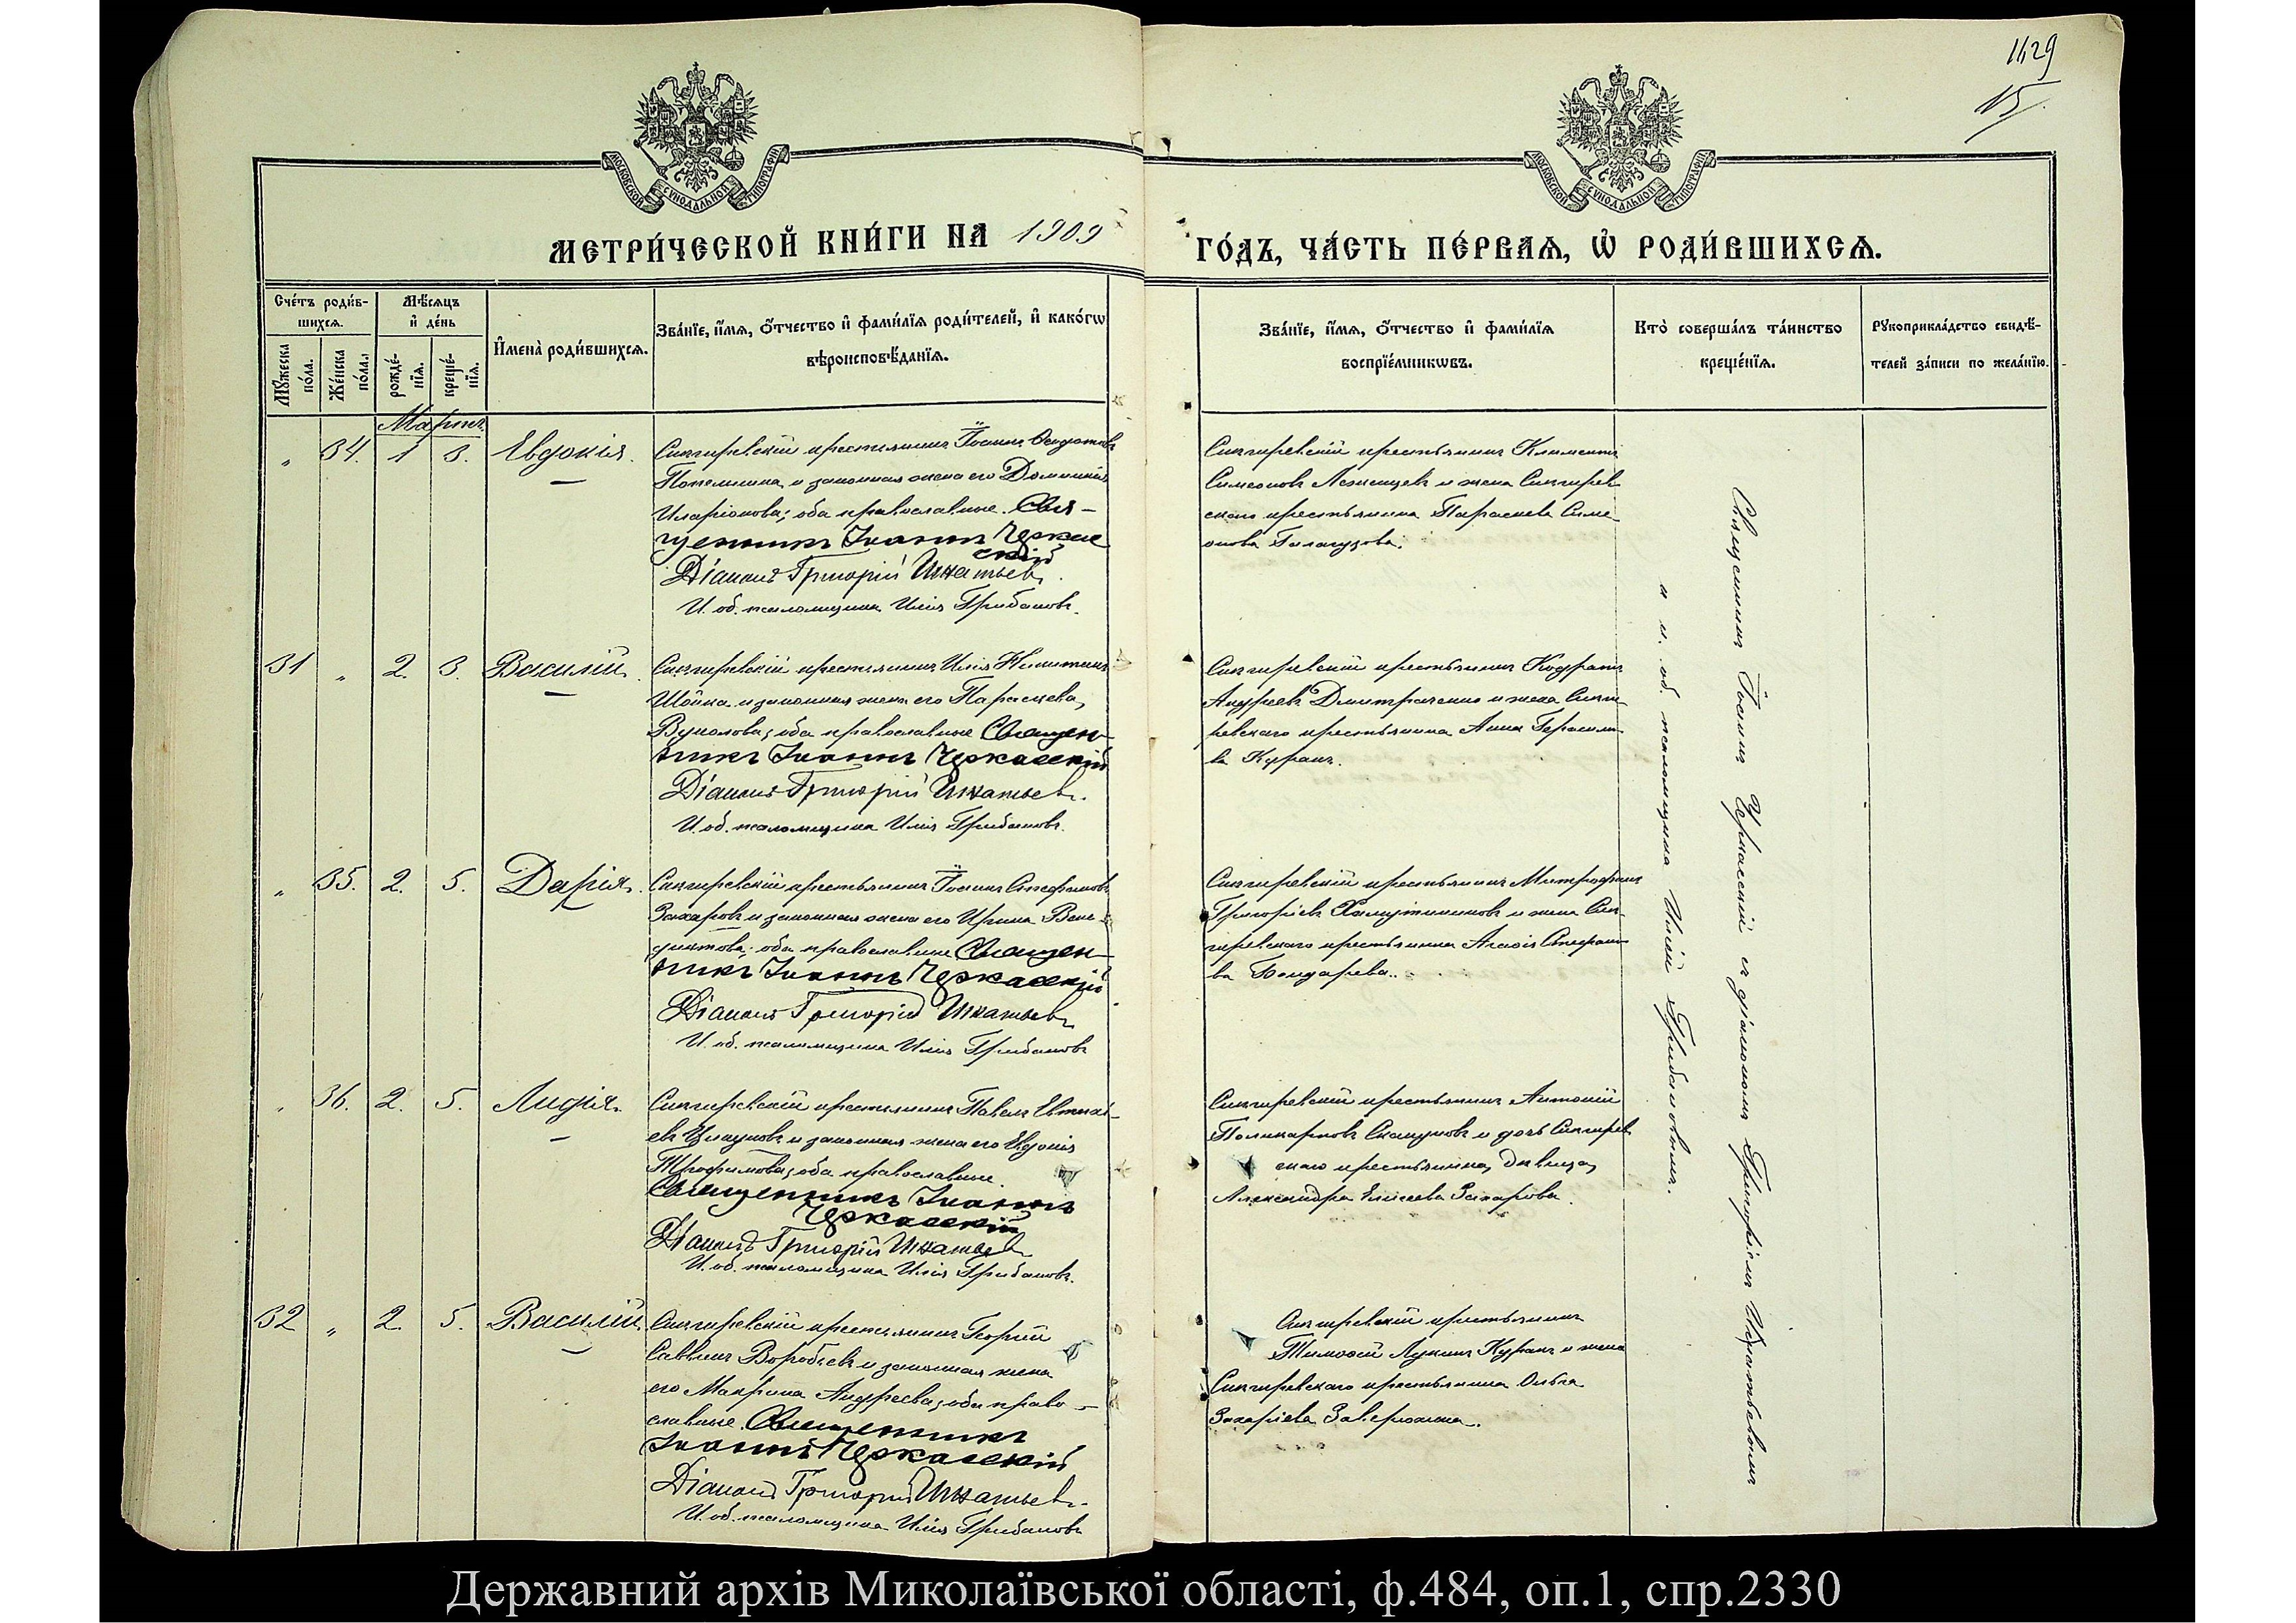 1129
15
МОСКОВСКОЙ СѴНОДАЛЬНОЙ ТИПОГРАФІИ
МОСКОВСКОЙ СѴНОДАЛЬНОЙ ТИПОГРАФІИ
МЕТРИ́ЧЕСКОЙ КНИ́ГИ НА 1909 ГО́ДЪ, ЧА́СТЬ ПЕ́РВАѦ, Ѡ҆ РОДИ́ВШИХСѦ.
Сче́тъ роди́в-
шихсѧ.
Мѹ́жеска по́ла.
Же́нска по́ла.
Мѣ́сѧцъ
и҆ де́нь
рожде́-
нїѧ.
креще́-
нїѧ.
И҆мена̀ роди́вшихсѧ.
Зва́нїе, и҆́мѧ, о҆́тчество и҆ фами́лїѧ роди́телей, и҆ како́гѡ
вѣроисповѣ́данїѧ.
Зва́нїе, и҆́мѧ, о҆́тчество и҆ фами́лїѧ
воспрїе́мникѡвъ.
Кто̀ соверша́лъ та́инство
креще́нїѧ.
Рѹкоприкла́дство свидѣ́-
телей за́писи по жела́нїю.
Мартъ
" 34. 1 3. Евдокія.
Снигиревскій крестьянинъ Іоаннъ
и законная жена его Домникія
Иларіонова; оба православные. Свя-
щенникъ Іоаннъ Черкас
скій
Діаконъ Григорій Игнатьевъ.
И. об. псаломщика Илія Грибановъ.
Снигиревскій крестьянинъ Климентъ
Симеоновъ и жена Снигирев
скаго крестьянина Параскева Симе
онова
31 " 2. 3. Василій.
Снигиревскій крестьянинъ Илія Никитинъ
Шойка и законная жена его Параскева
Вуколова; оба православные Священ-
никъ Іоаннъ Черкасскій
Діаконъ Григорій Игнатьевъ.
И. об. псаломщика Илія Грибановъ.
Снигиревскій крестьянинъ Кодратъ
Андреевъ Дмитраченко и жена Сниги
ревскаго крестьянина Анна Герасимо
ва Куранъ.
" 35. 2. 5. Дарія.
Снигиревскій крестьянинъ Іоаннъ Стефановъ
Захаровъ и законная жена его Ирина Вене-
диктова; оба православные Священ-
никъ Іоаннъ Черкасскій
Діаконъ Григорій Игнатьевъ
И. об. псаломщика Илія Грибановъ
Снигиревскій крестьянинъ Митрофанъ
Григоріевъ и жена Сни-
гиревскаго крестьянина Агафія Стефано
ва Бондарева.
" 36. 2. 5. Лидія.
Снигиревскій крестьянинъ Павелъ Евтихі-
евъ и законная жена его Евдокія
Трофимова; оба православные.
Священникъ Іоаннъ
Черкасскій
Діаконъ Григорій Игнатьевъ
И. об. псаломщика Илія Грибановъ.
Снигиревскій крестьянинъ Антоній
Поликарповъ Скакуновъ и дочь Снигирев
скаго крестьянина, девица
Александра Елисеева Захарова.
32 " 2. 5. Василій.
Снигиревскій крестьянинъ Георгій
Саввинъ Воробьевъ и законная жена
его Макрина Андреева; оба право-
славные. Священникъ
Іоаннъ Черкасскій
Діаконъ Григорій Игнатьевъ.
И. об. псаломщика Илія Грибановъ
Снигиревскій крестьянинъ
Тимофей Лукинъ Куранъ и жена
Снигиревскаго крестьянина Ольга
Захаріева
Священникъ Іоаннъ Черкасскій съ діакономъ Григоріемъ Игнатьевымъ
и и. об. псаломщика Иліей Грибановымъ.
Державний архів Миколаївської області, ф.484, оп.1, спр.2330